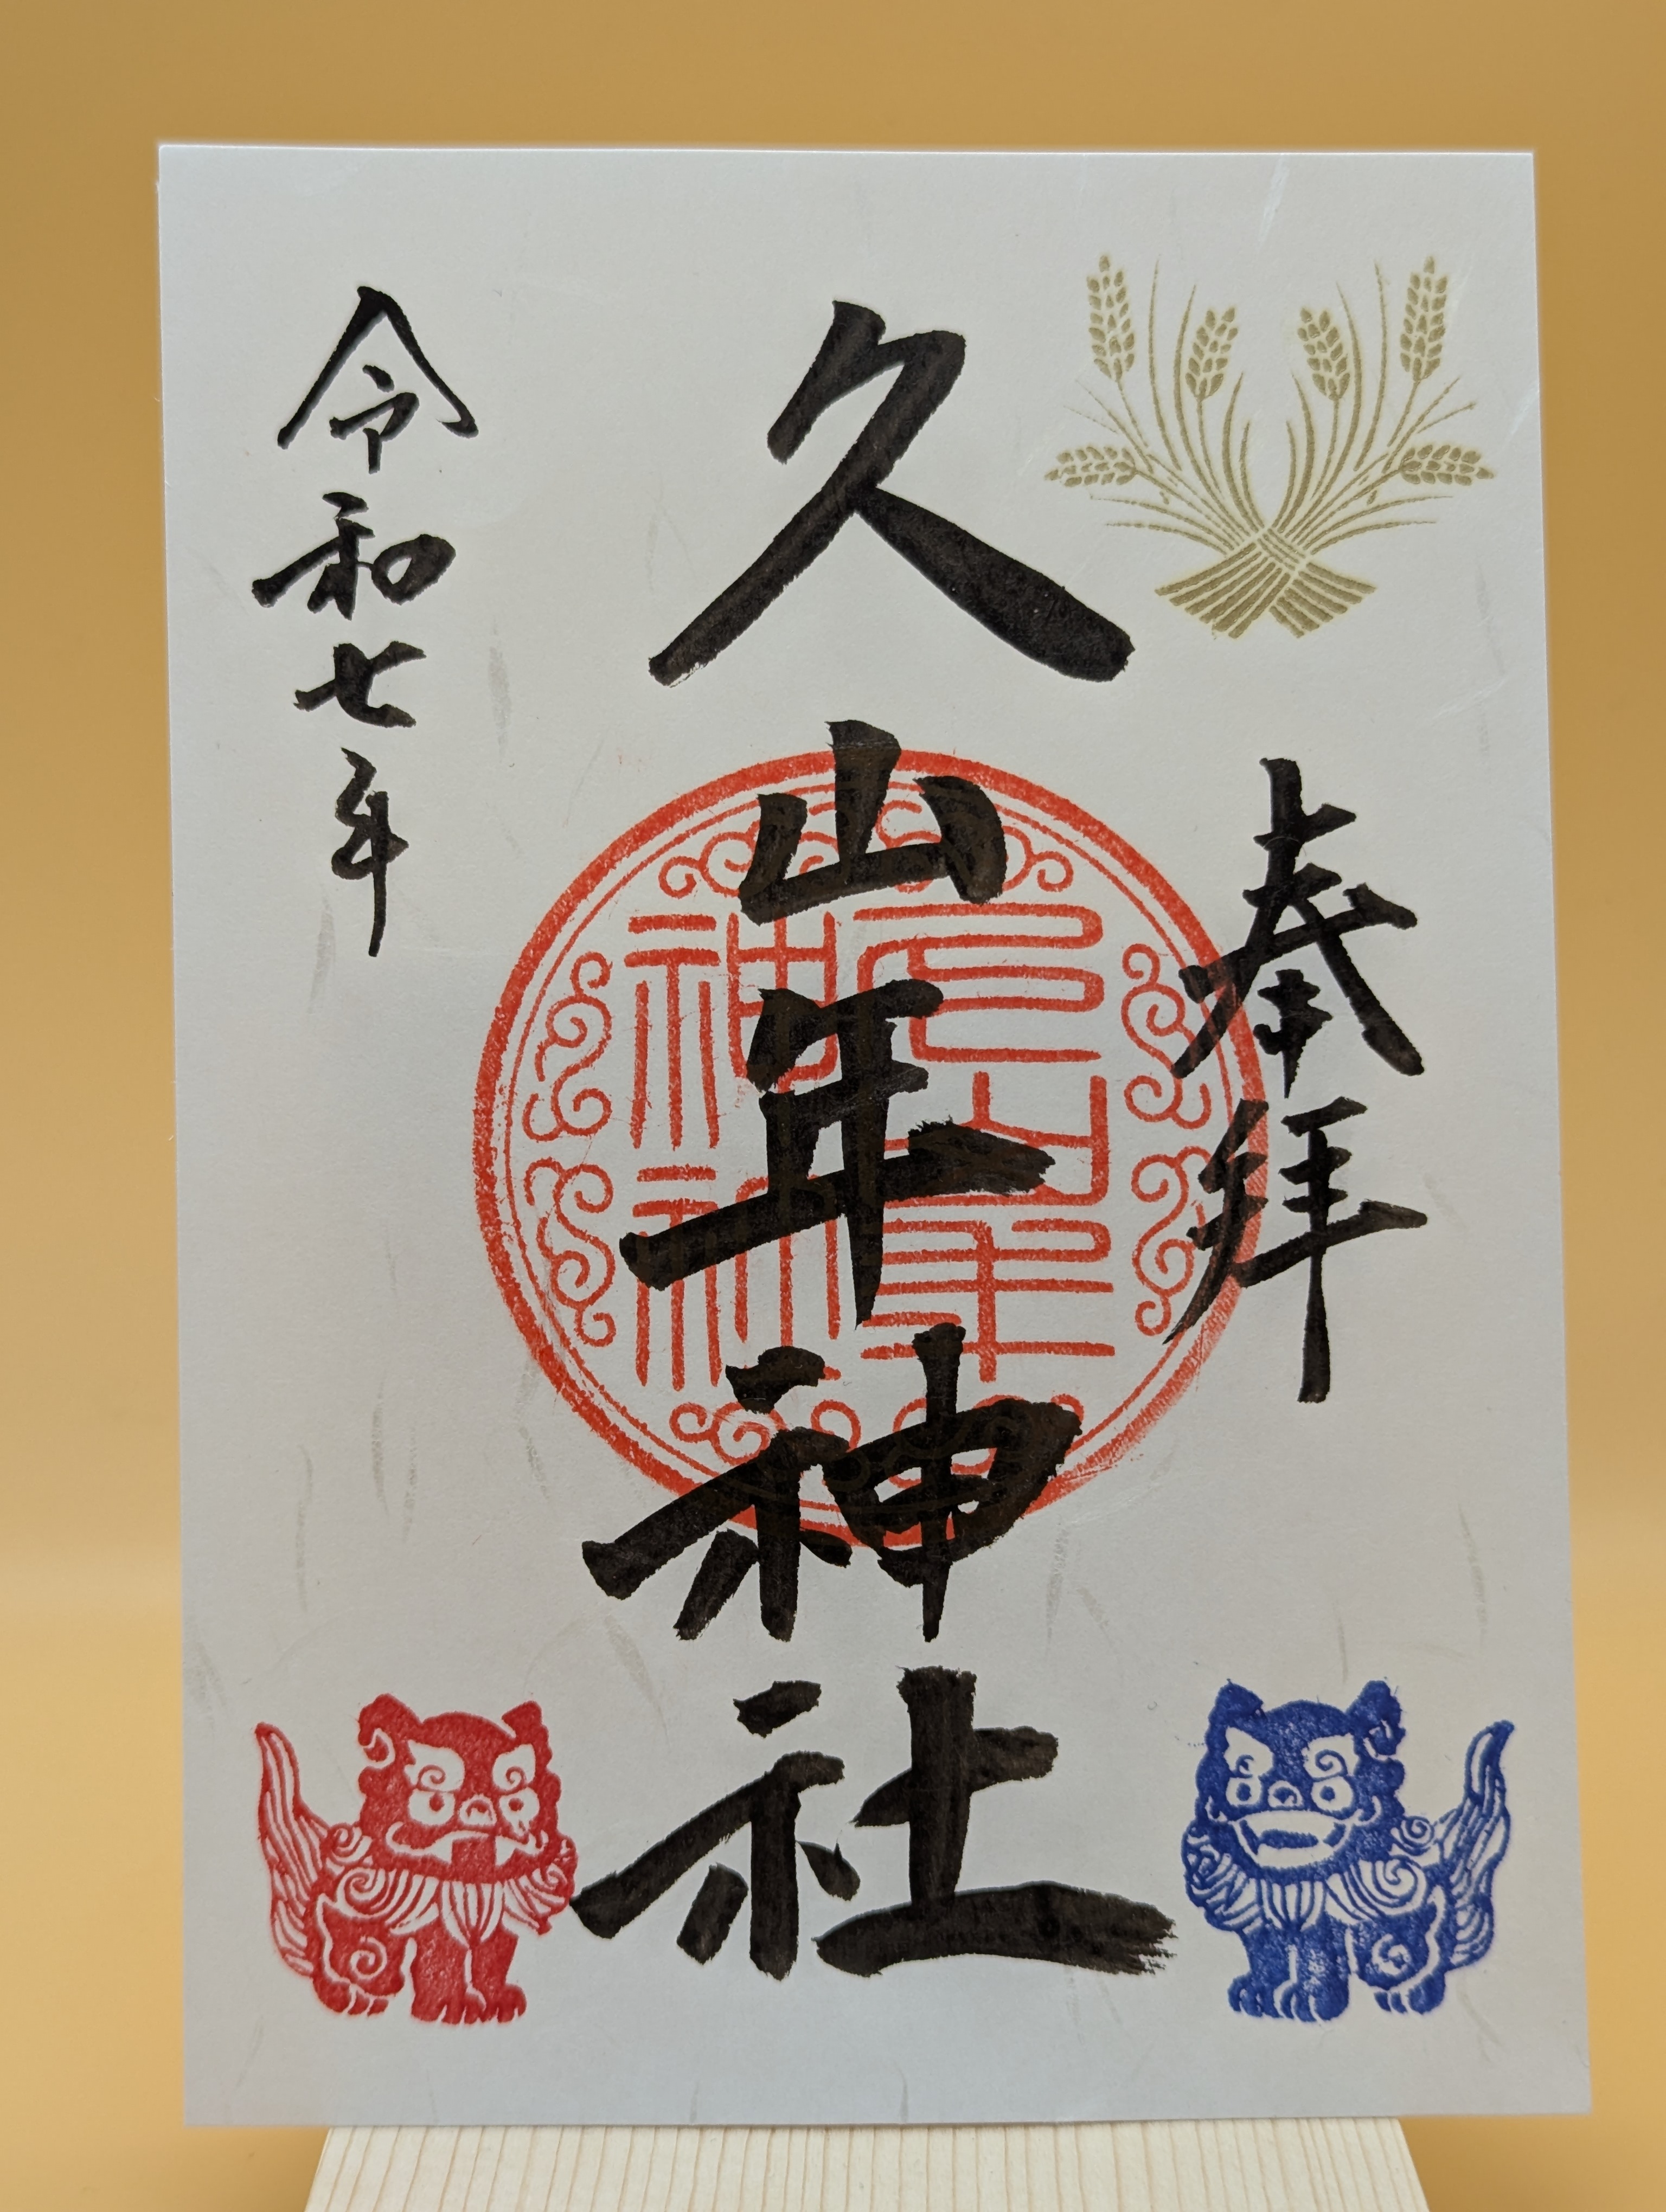 奉拝
久山年神社
久山年神社
令和七年